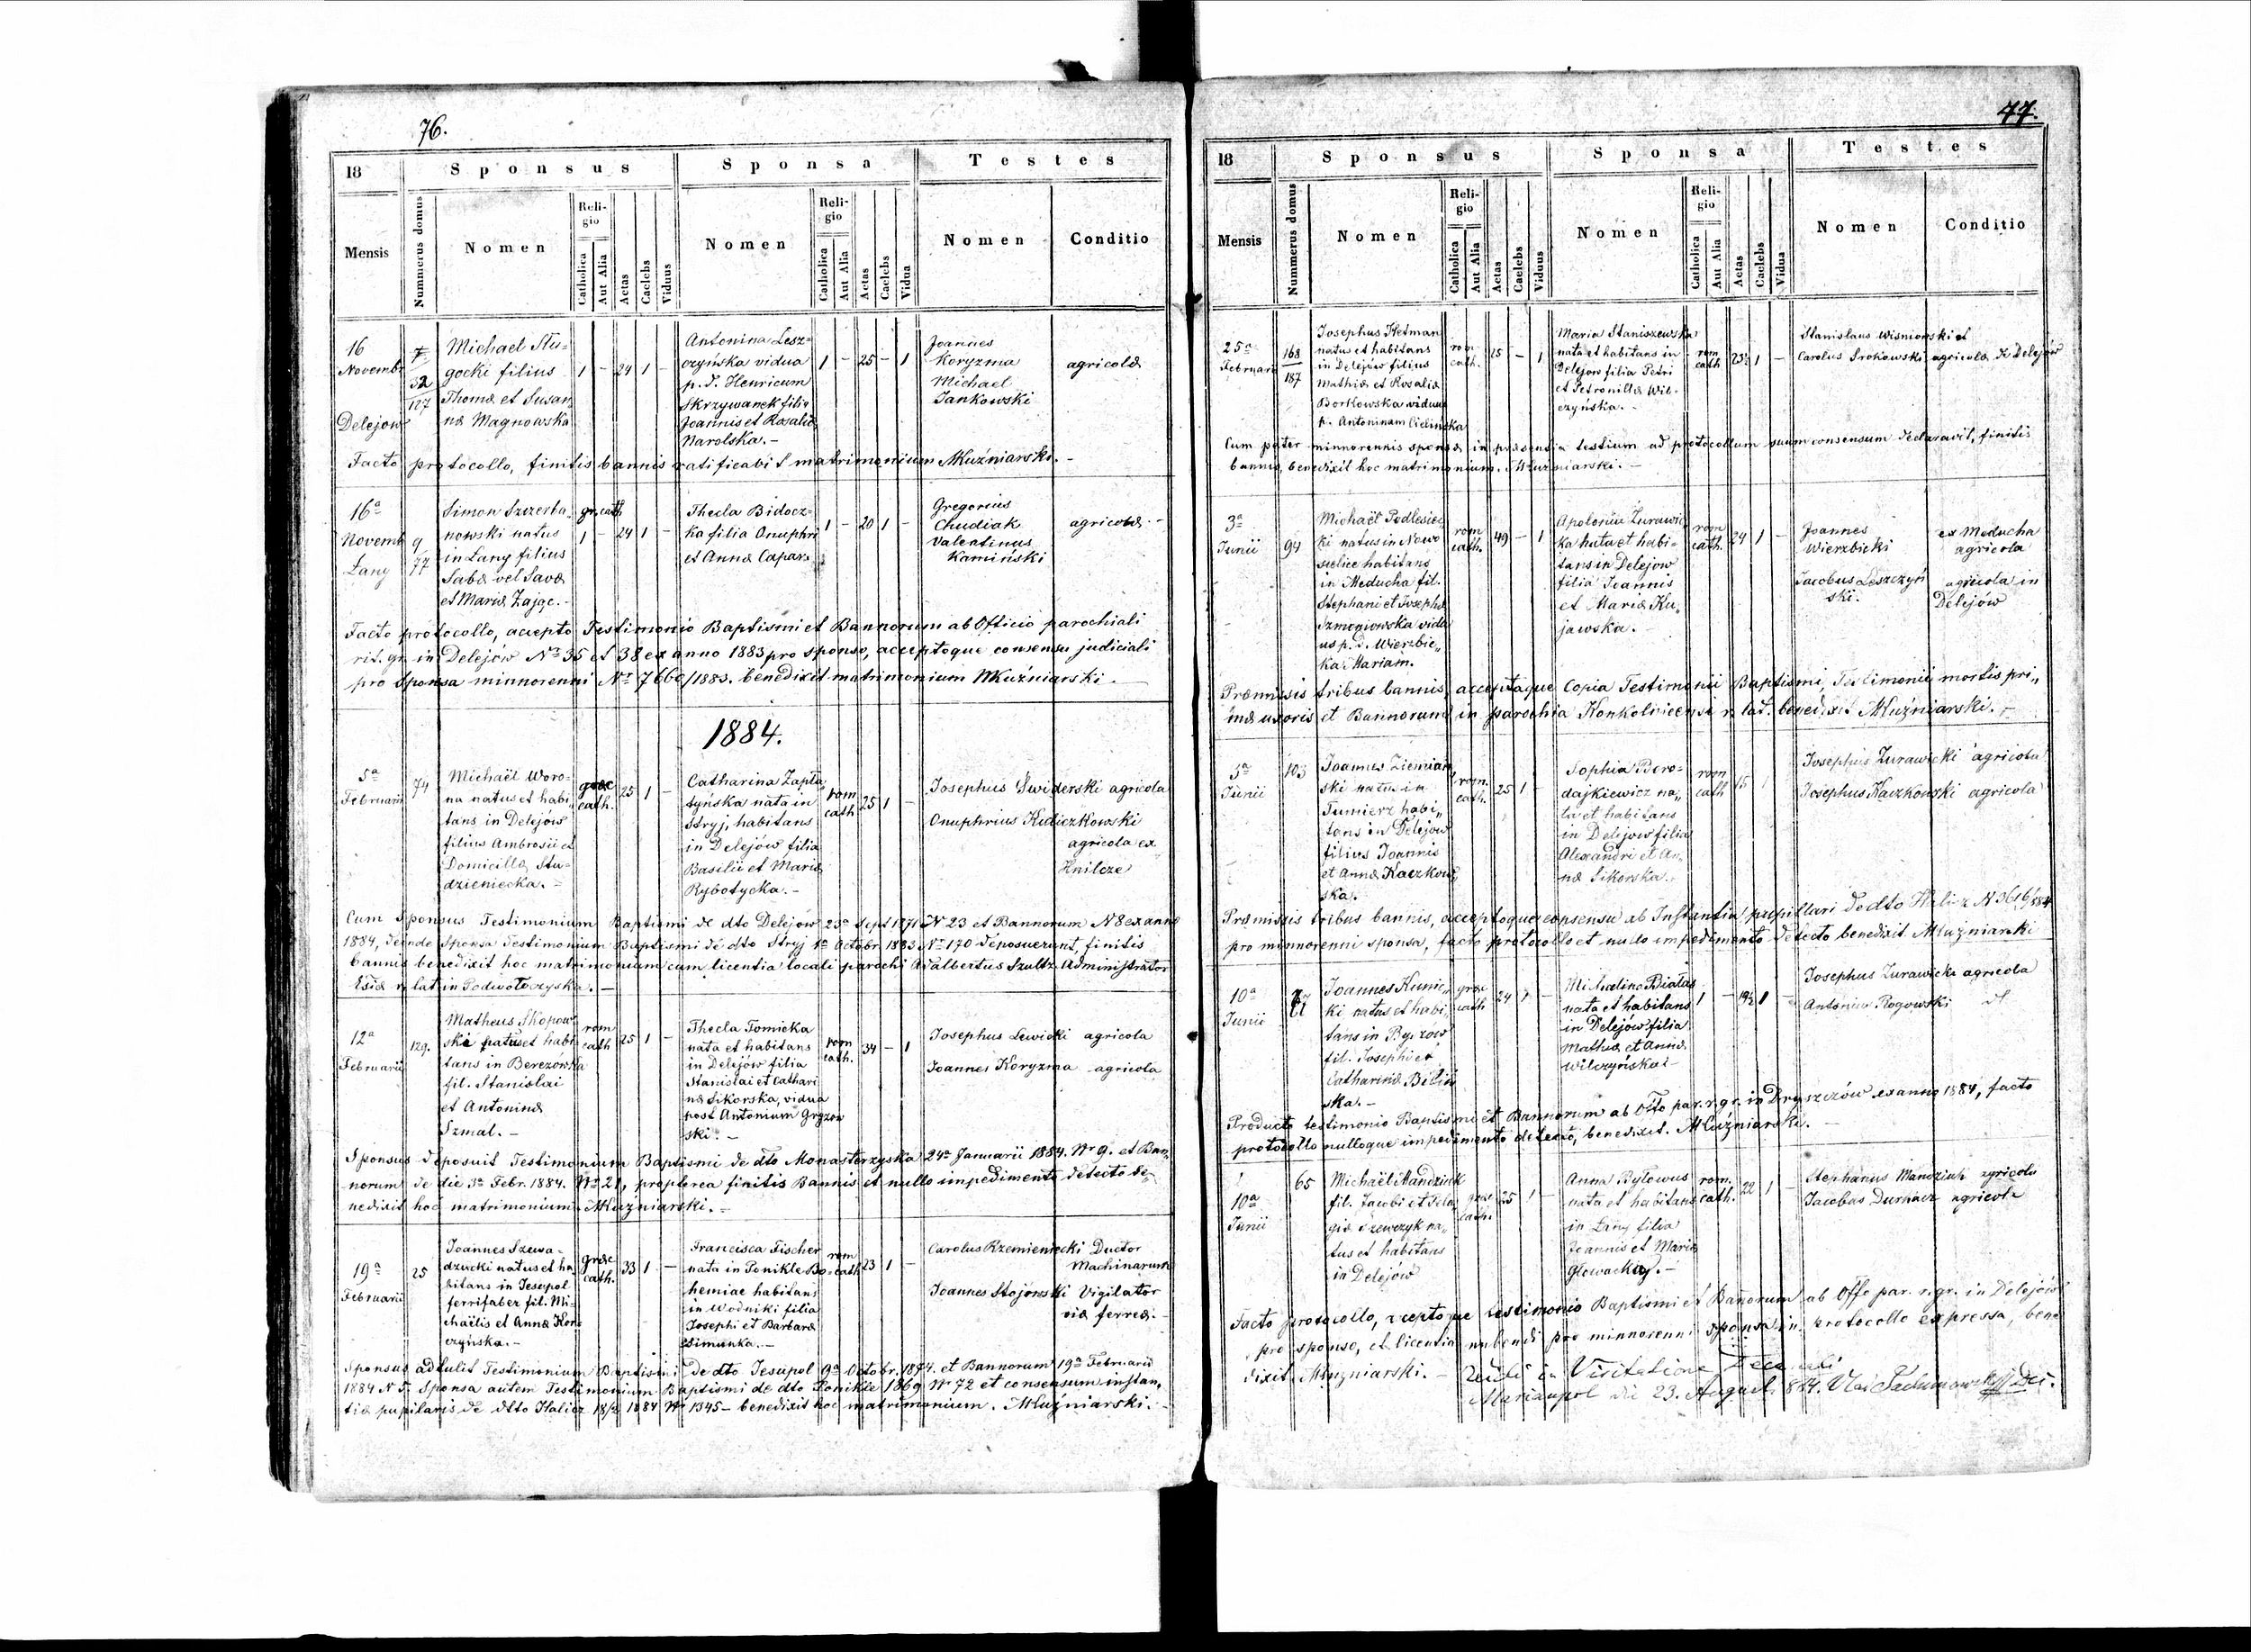 76.
18
Sponsus
Sponsa
Testes
Mensis
Nummerus domus
Nomen
Religio
Catholica
Aut Alia
Aetas
Caelebs
Viduus
Nomen
Religio
Catholica
Aut Alia
Aetas
Caelebs
Vidua
Nomen
Conditio
16
Novembr
Delejow
32
127
Michael Stu=
gocki filius
Thomæ et Susan
næ Magnowska
1 - 24 1 -
Antonina Lesz=
czyńska vidua
p. d. Henricum
Skrzywanek filia
Joannis et Rosaliæ
Narolska. -
1 - 25 - 1
Joannes
Koryzma
Michael
Jankowski
agricolæ
Facto protocollo, finitis bannis ratificabit matrimonium MKuźniarski. -
16a
Novemb
Łany
9
77
Simon Szczerba=
nowski natus
in Łany filius
Sabæ vel Savæ
et Mariæ Zając. -
gr. cath
1 - 24 1 -
Thecla Bidocz=
ka filia Onuphri
et Annæ Capar.
1 - 20 1 -
Gregorius
Chudiak
Valentinus
Kamiński
agricolæ. -
Facto protocollo, accepto Testimonio Baptismi et Bannorum ab Officio parochiali
rit. gr. in Delejów No 35 et 38 ex anno 1883 pro sponso, acceptoque consensu judiciali
pro Sponsa minnorenni Nr 7660/1883. benedixit matrimonium MKuźniarski. -
1884.
5a
Februarii
74
Michaël Woro=
na natus et habi
tans in Delejów
filius Ambrosii et
Domicillæ Stu=
dzieniecka. -
græc
cath.
25 1 -
Catharina Zapła
tyńska nata in
Stryj, habitans
in Delejów filia
Basilii et Mariæ
Rybotycka. -
rom
cath
25 1 -
Josephus Swiderski agricola
Onuphrius Kidiczkowski
agricola ex
Hnilcze
Cum Sponsus Testimonium Baptismi de dto Delejow 23a Sept 1871 N 23 et Bannorum N 8 ex anno
1884, deinde Sponsa Testimonium Baptismi de dto Stryj 1a Octobr. 1883 Nr 170 deposuerunt, finitis
bannis benedixit hoc matrimonium cum licentia locali parochi Adalbertus Szultz Administrator
r. lat in Podwołoczyska. -
12a
Februarii
129.
Matheus Skopow
ski natus et habi
tans in Berezówka
fil. Stanislai
et Antoninæ
Szmal. -
rom
cath
25 1 -
Thecla Tomicka
nata et habitans
in Delejów filia
Stanislai et Cathari
næ Sikorska, vidua
post Antonium Gryzow
ski. -
rom
cath.
34 - 1
Josephus Lewicki agricola
Joannes Koryzma agricola
Sponsus deposuit Testimonium Baptismi de dto Monasterzyska 24a Januarii 1884. Nr 9. et Ban=
norum de die 3a Febr. 1884. Nr 21, propterea finitis Bannis et nullo impedimento detecto be=
nedixit hoc matrimonium. MKuźniarski. -
19a
Februarii
25
Joannes Szewa=
dzucki natus et ha
bitans in Jesupol
ferrifaber fil. Mi=
chaëlis et Annæ Kor
czyńska. -
græc
cath.
33 1 -
Francisca Fischer
nata in Ponikle Bo=
hemiae habitans
in Wodniki filia
Josephi et Barbaræ
Simunka. -
rom
cath
23 1 -
Carolus Rzemieniecki Ductor
Machinarum
Joannes Stojowski Vigilator
viæ ferreæ. -
Sponsus adtulit Testimonium Baptismi de dto Jesupol 9a Octobr. 1874. et Bannorum 19a Februarii
1884 N 5, Sponsa autem Testimonium Baptismi de dto Ponikle 1869 Nr 72 et consensum instan=
tiæ pupilaris de dto Halicz 18/2 1884 Nr 1345 - benedixit hoc matrimonium. MKuźniarski. -
77.
18
Sponsus
Sponsa
Testes
Mensis
Nummerus domus
Nomen
Religio
Catholica
Aut Alia
Aetas
Caelebs
Viduus
Nomen
Religio
Catholica
Aut Alia
Aetas
Caelebs
Vidua
Nomen
Conditio
25a
Februarii
168
187
Josephus Hetman
natus et habitans
in Delejów filius
Mathiæ et Rosaliæ
Borkowska viduus
p. Antoninam Cielinska
rom
cath.
25 - 1
Maria Staniszewska
nata et habitans in
Delejow filia Petri
et Petronillæ Wil=
czyńska. -
rom
cath
23½ 1 -
Stanislaus Wisniowski et
Carolus Srokowski agricolæ de Delejów
Cum pater minnorennis sponsæ in præsentia testium ad protocollum suum consensum declaravit, finitis
bannis, benedixit hoc matrimonium. MKuźniarski. -
3a
Junii
94
Michaël Podlesiec
ki natus in Nowo
sielice habitans
in Meducha fil.
Stephani et Josephæ
Szmoniowska vidu
us p. d. Wierzbic=
ka Mariam.
rom
cath.
49 - 1
Apolonia Żurawic
ka nata et habi=
tans in Delejow
filia Joannis
et Mariæ Ku=
jawska. -
rom
cath.
24 1 -
Joannes
Wierzbicki
ex Meducha
agricola
Jacobus Leszczyń
ski.
agricola in
Delejów
Præmissis tribus bannis, acceptaque Copia Testimonii Baptismi, Testimonii mortis pri=
mæ uxoris et Bannorum in parochia Konkolnicensi r. lat. benedixit MKuźniarski. -
5a
Junii
103
Joannes Ziemian
ski natus in
Tumierz habi=
tans in Delejow
filius Joannis
et Annæ Kaczkow
ska.
rom.
cath.
25 1 -
Sophia Boro=
dajkiewicz na=
ta et habitans
in Delejow filia
Alexandri et An=
næ Sikorska.
rom
cath
Josephus Zurawicki agricola
Josephus Kaczkowski agricola
Præmissis tribus bannis, acceptoque consensu ab Instantia pupillari de dto Halicz N 3616/884
pro minnorenni sponsa, facto protocollo et nullo impedimento detecto benedixit MKuźniarski
10a
Junii
Joannes Kunic=
ki natus et habi=
tans in Byszow
fil. Josephi et
Catharinæ Bilin
ska. -
græc
cath
24 1 -
Michalina Białas
nata et habitans
in Delejów filia
Mathiæ et Annæ
Wilczyńska -
1 - 19½ 1 -
Josephus Zurawicki agricola
Antonius Rogowski
Producto testimonio Baptismi et Bannorum ab Offo par. r. gr. in Dryszczów ex anno 1884, facto
protocollo nulloque impedimento detecto, benedixit. MKuźniarski. -
10a
Junii
65
Michaël Mandziuk
fil. Jacobi et Pela
giæ Szewczyk na=
tus et habitans
in Delejów
græc
cath.
25 1 -
Anna Bylowus
nata et habitans
in Łany filia
Joannis et Mariæ
Głowacka. -
rom.
cath.
22 1 -
Stephanus Mandziuk agricola
Jacobus Durkacz agricola
Facto protocollo, acceptoque testimonio Baptismi et Bannorum ab Offo par. r. gr. in Delejów
pro sponso, et licentia nubendi pro minnorenni sponsa in protocollo expressa, bene
dixit MKuźniarski. -
Vidi in Visitatione Decanali
Mariampol die 23. Augusti 884.